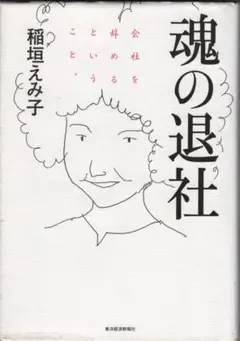 魂の退社
会社を
辞める
という
こと。
稲垣えみ子
東洋経済新報社